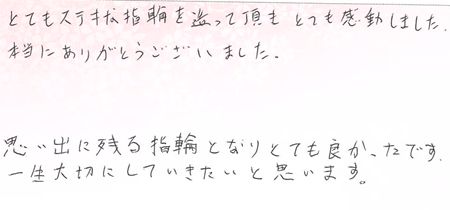 とてもステキな指輪を造って頂き とても感動しました.
本当にありがとうございました。
思い出に残る指輪となりとても良かったです.
一生大切にしていきたいと思います。